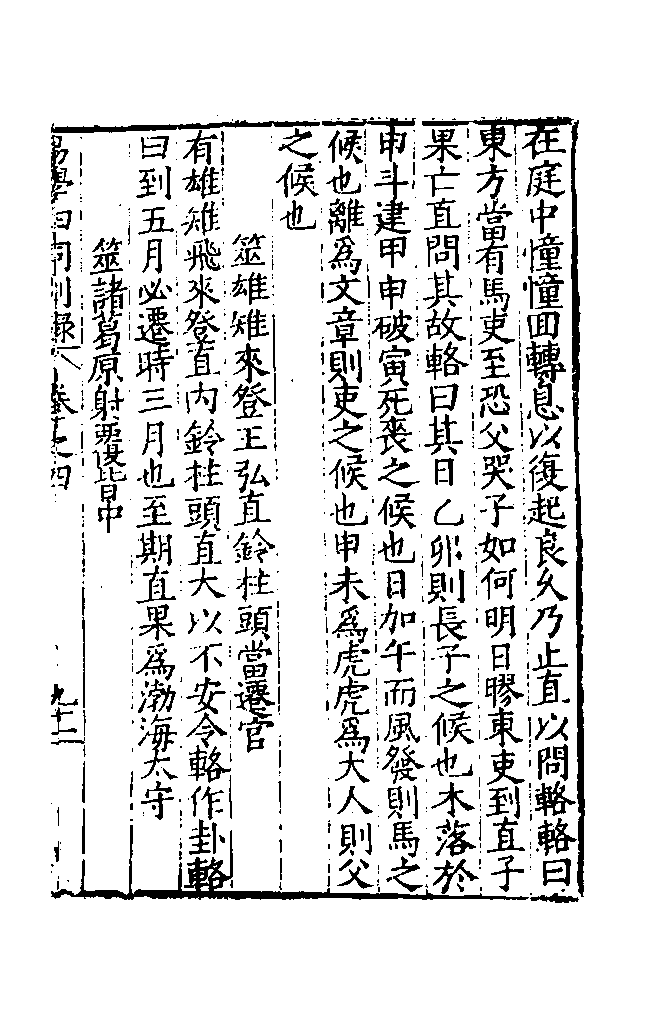 在庭中憧憧囬轉息以復起良久乃止直以問輅輅曰
東方當有馬吏至恐父哭子如何明日膠東吏到直子
果亡直問其故輅曰其日乙卯則長子之候也木落於
申斗建甲申破寅死喪之候也日加午而風發則馬之
候也離爲文章則吏之候也申未爲虎虎爲大人則父
之候也
筮雄雉來登王弘直鈴柱頭當遷官
有雄雉飛來登直内鈴柱頭直大以不安令輅作卦輅
曰到五月必遷時三月也至期直果爲渤海太守
筮諸葛原射覆皆中
易學
卷之四
九十二